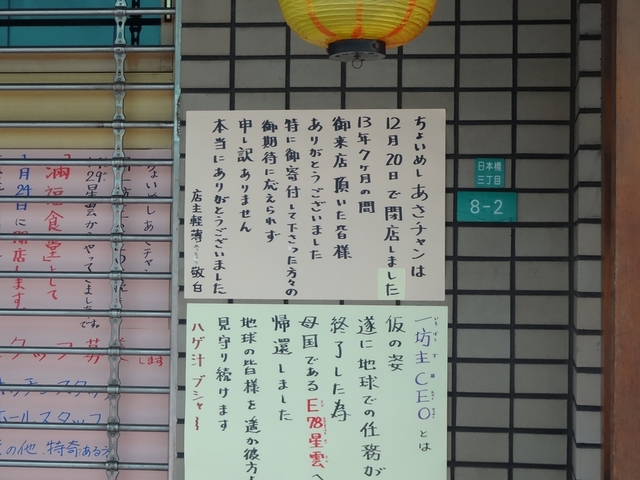 ちょいめしあさチャンは
12月20日で閉店しました
13年7ヶ月の間
御来店頂いた皆様
ありがとうございました
特に御寄付して下さった方々の
御期待に応えられず
申し訳ありません
本当にありがとうございました
店主軽薄 敬白
日本橋
三丁目
8-2
一坊主CEOとは
仮の姿
遂に地球での任務が
終了した為
母国であるE78星雲へ
帰還しました
地球の皆様を遥か彼方よ
見守り続けます
ハゲ汁ブシャー
満福食堂」として
月24日に開店します
ホールスタッフ
の他 特奇ある方